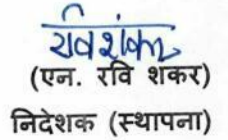 रविशंकर
(एन. रवि शकर)
निदेशक (स्थापना)